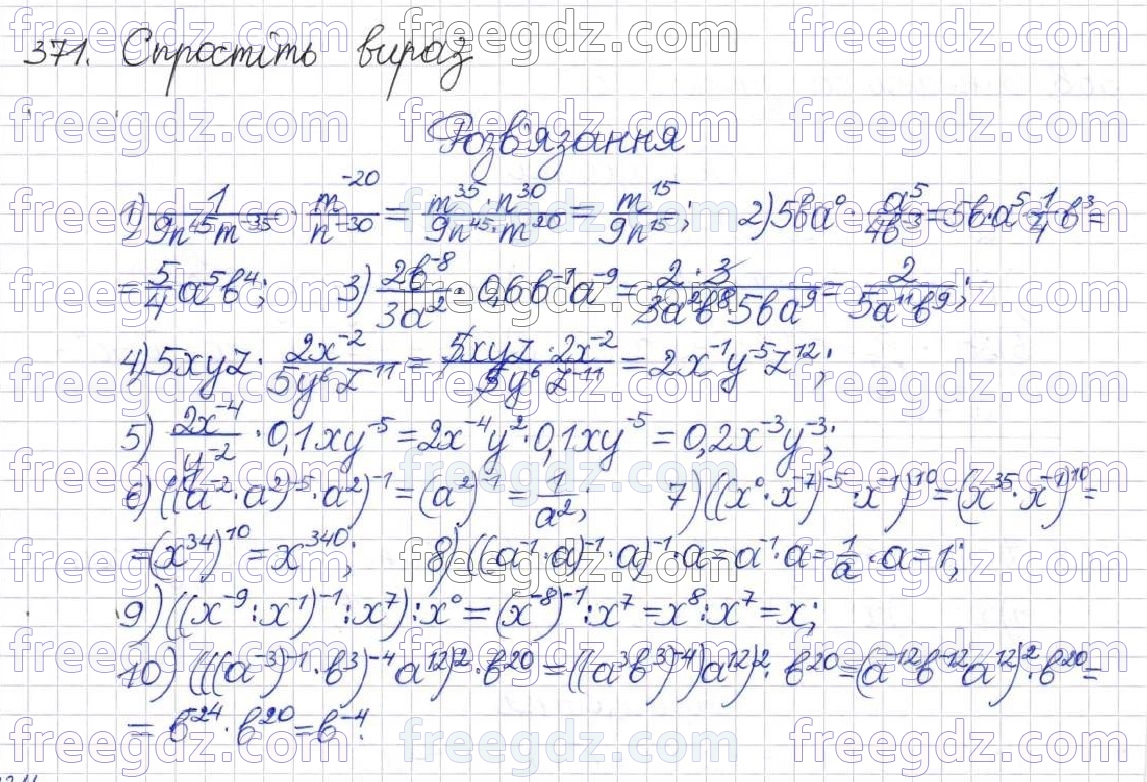 371. Спростіть вираз
Розв'язання
1) 1/(9n⁴⁵m⁻³⁵) · m⁻²⁰/n⁻³⁰ = (m³⁵·n³⁰)/(9n⁴⁵·m²⁰) = m¹⁵/(9n¹⁵); 2) 5ba⁰ · a⁵/(4b⁻³) = 5b·a⁵·1/4·b³ =
= 5/4 a⁵b⁴; 3) 2b⁻⁸/(3a²) · 0,6b⁻¹a⁻⁹ = (2·3)/(3a²b⁸·5ba⁹) = 2/(5a¹¹b⁹);
4) 5xyz · 2x⁻²/(5y⁶z⁻¹¹) = (5xyz·2x⁻²)/(5y⁶z⁻¹¹) = 2x⁻¹y⁻⁵z¹²;
5) 2x⁻⁴/y⁻² · 0,1xy⁻⁵ = 2x⁻⁴y²·0,1xy⁻⁵ = 0,2x⁻³y⁻³;
6) ((a⁻²·a²)⁻⁵·a²)⁻¹ = (a²)⁻¹ = 1/a²; 7) ((x⁰·x⁻⁷)⁻⁵·x⁻¹)¹⁰ = (x³⁵·x⁻¹)¹⁰ =
= (x³⁴)¹⁰ = x³⁴⁰; 8) ((a⁻¹·a)⁻¹·a)⁻¹·a = a⁻¹·a = 1/a·a = 1;
9) ((x⁻⁹:x⁻¹)⁻¹:x⁷):x⁰ = (x⁻⁸)⁻¹:x⁷ = x⁸:x⁷ = x;
10) (((a⁻³)⁻¹·b³)⁻⁴a¹²)²·b²⁰ = ((a³b³)⁻⁴)a¹²)²·b²⁰ = (a⁻¹²b⁻¹²a¹²)²·b²⁰ =
= b⁻²⁴·b²⁰ = b⁻⁴.